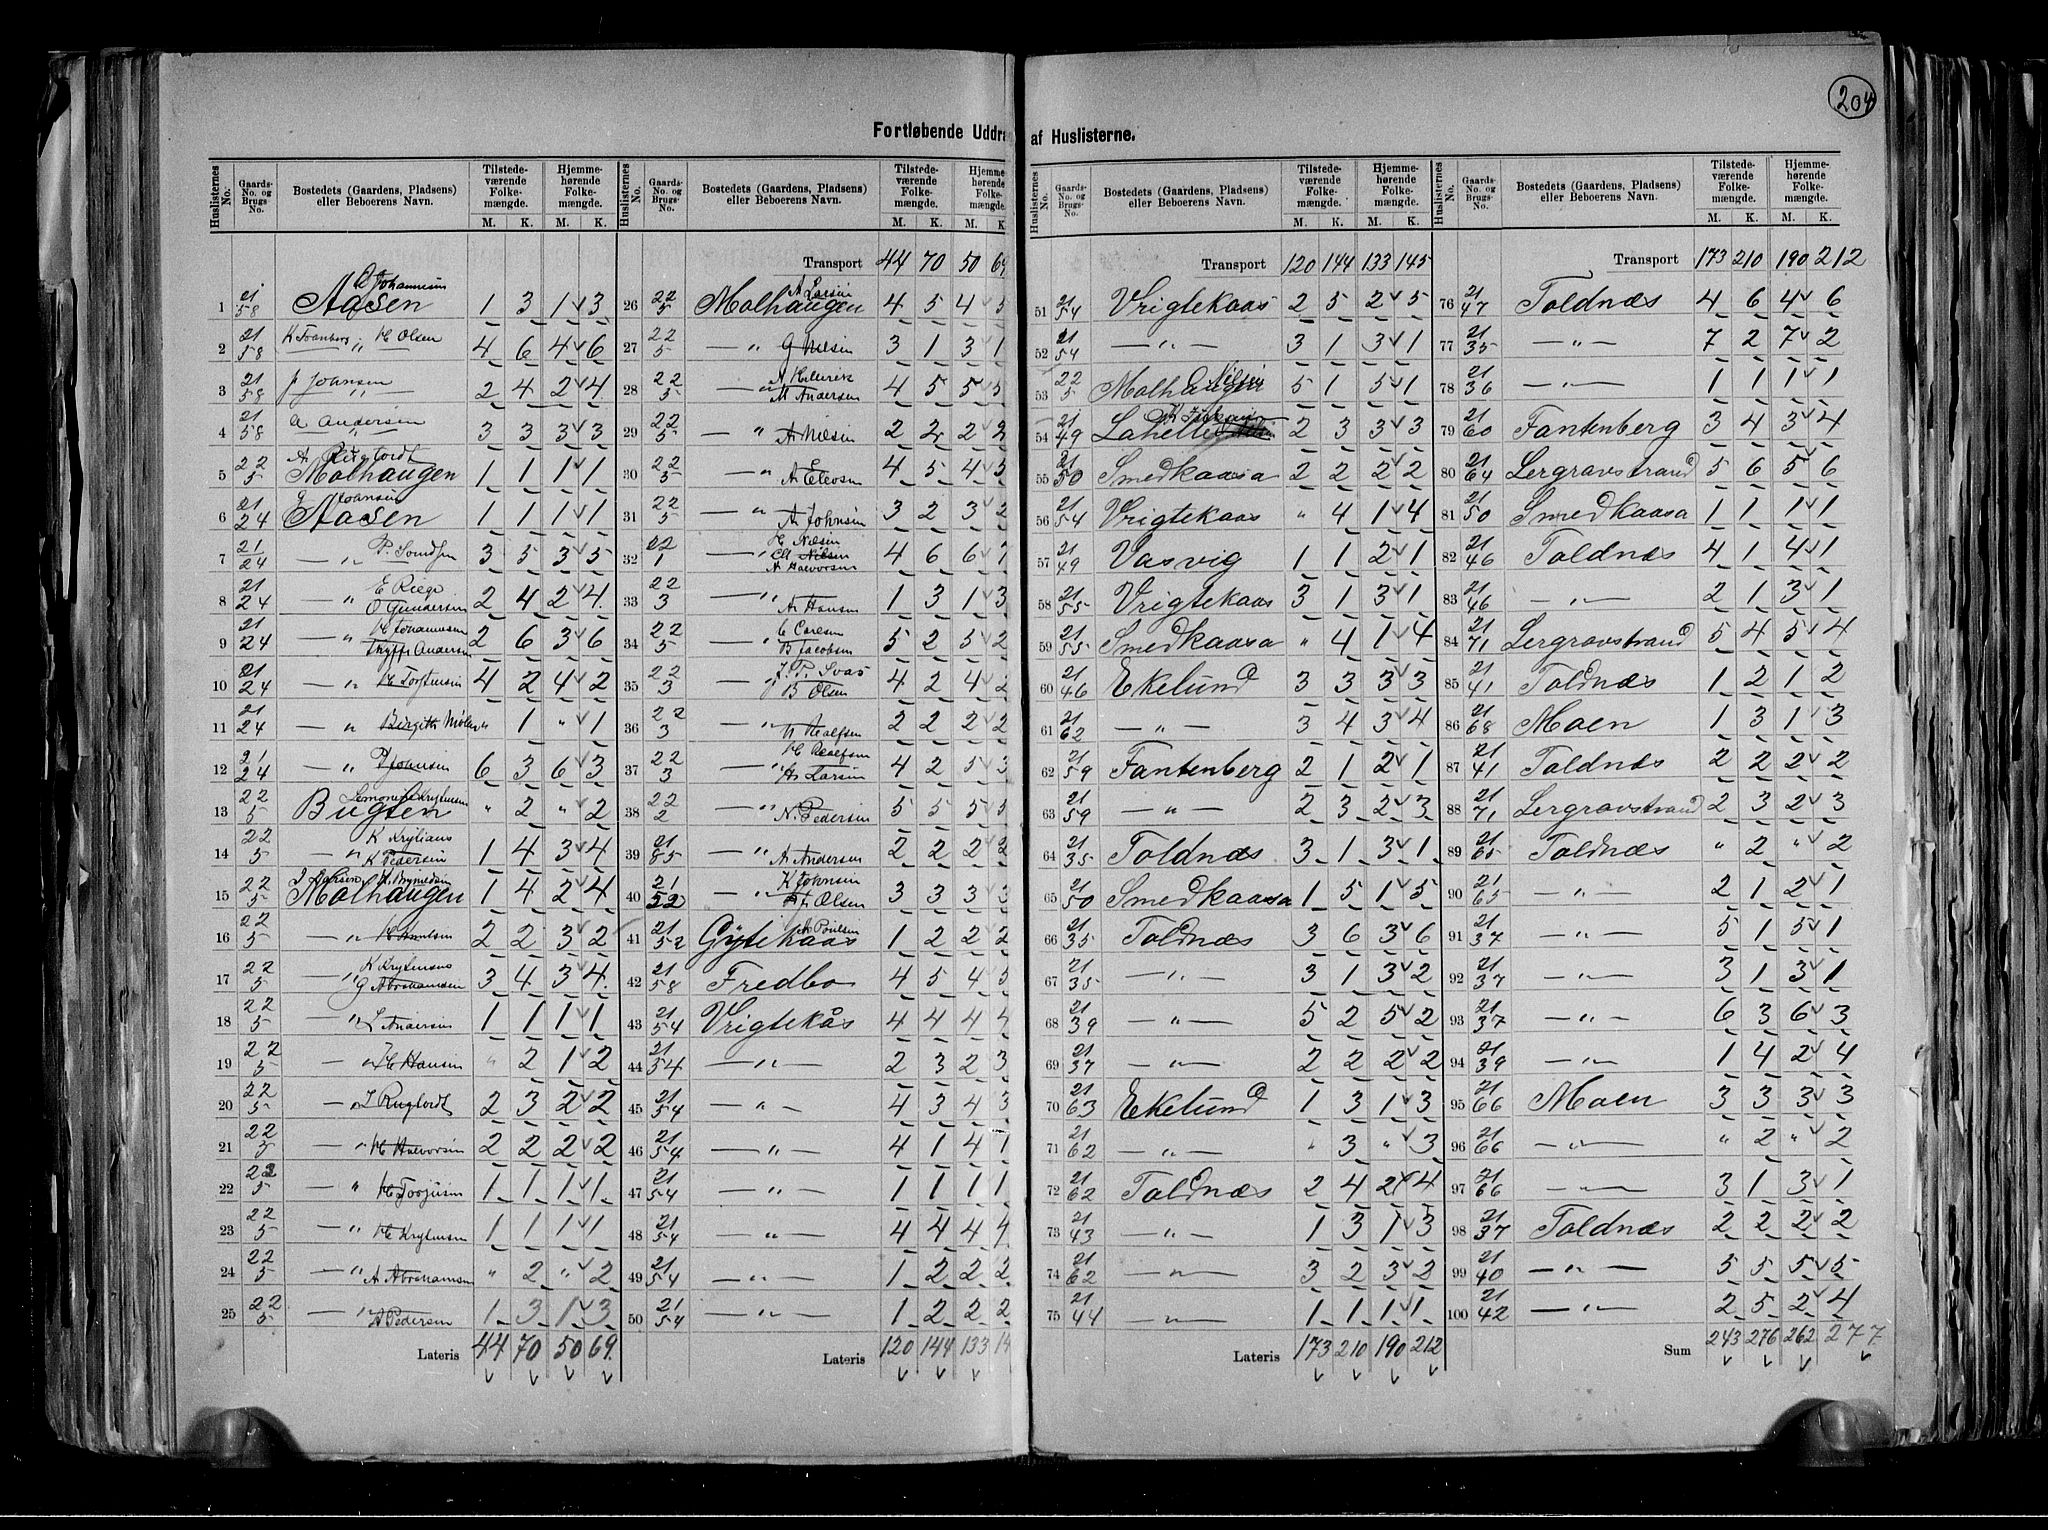 204
Fortløbende Uddra af Huslisterne.
Huslisternes No. Gaards-No. og Brugs-No. Bostedets (Gaardens, Pladsens) eller Beboerens Navn. Tilstedeværende Folkemængde. M. K. Hjemmehørende Folkemængde. M. K.
1 21/58 Aasen O Johannesen 1 3 1 3
2 21/58 K Svanberg " H Olsen 4 6 4 6
3 21/58 J Johnsen " 2 4 2 4
4 21/58 A Andersen " 3 3 3 3
5 22/5 Molhaugen 1 1 1 1
6 21/24 Aasen Johnsen 1 1 1 1
7 21/24 — " — 3 5 3 5
8 21/24 — " E Riege O Gundersen 2 4 2 4
9 21/24 — " H Johannesen Andersen 2 6 3 6
10 21/24 — " H Torstensen 4 2 4 2
11 21/24 — " Birgitte " 1 " 1
12 21/24 — " P Johnsen 6 3 6 3
13 22/5 Bugten " 2 " 2
14 22/5 — " K Pedersen 1 4 3 4
15 22/5 Molhaugen 1 4 2 4
16 22/5 — " 2 2 3 2
17 22/5 — " G Abrahamsen 3 4 3 4
18 22/5 — " L Andersen 1 1 1 1
19 22/5 — " H Hansen " 2 1 2
20 22/5 — " 2 3 2 2
21 22/5 — " H Halvorsen 2 2 2 2
22 22/5 — " 1 1 1 1
23 22/5 — " 1 1 1 1
24 22/5 — " A Abrahamsen " 2 " 2
25 22/5 — " A Pedersen 1 3 1 3
Lateris 44 70 50 69
Transport 44 70 50 69
26 22/5 Molhaugen A Larsen 4 5 4 5
27 22/5 — " G Nilsen 3 1 3 1
28 22/5 — " M Andersen 4 5 5 5
29 22/5 — " A Nilsen 2 2 2 2
30 22/5 — " A Ellevsen 4 5 4 5
31 22/5 — " A Johnsen 3 2 3 2
32 22/1 — " H Nilsen Nilsen A Halvorsen 4 6 6 7
33 22/3 — " A Hansen 1 3 1 3
34 22/5 — " C Carlsen B Jacobsen 5 2 5 2
35 22/3 — " J. P. Svas B Olsen 4 2 4 2
36 22/3 — " N Roalfsen 2 2 2 2
37 22/3 — " H Roalfsen A Larsen 4 2 5 3
38 22/2 — " N. Pedersen 5 5 5 5
39 21/85 — " A Andersen 2 2 2 2
40 21/52 — " K Johnsen Olsen 3 3 3 3
41 21/52 Gytekaas A Poulsen 1 2 2 2
42 21/58 Fredbo 4 5 4 5
43 21/54 Vrigtekås 4 4 4 4
44 21/54 — " — 2 3 2 3
45 21/54 — " — 4 3 4 3
46 21/54 — " — 4 1 4 1
47 21/54 — " — 1 1 1 1
48 21/54 — " — 4 4 4 4
49 21/54 — " — 1 2 2 2
50 21/54 — " — 1 2 2 2
Lateris 120 144 133 14
Huslisternes No. Gaards-No. og Brugs-No. Bostedets (Gaardens, Pladsens) eller Beboerens Navn. Tilstedeværende Folkemængde. M. K. Hjemmehørende Folkemængde. M. K.
Transport 120 144 133 145
51 21/54 Vrigtekaas 2 5 2 5
52 21/54 — " — 3 1 3 1
53 22/5 Molhaugen Nilsen 5 1 5 1
54 21/49 2 3 3 3
55 21/50 Smedkaasa 2 2 2 2
56 21/54 Vrigtekaas " 4 1 4
57 21/49 Vasvig 1 1 2 1
58 21/55 Vrigtekaas 3 1 3 1
59 21/55 Smedkaasa " 4 1 4
60 21/46 Ekelund 3 3 3 3
61 21/62 — " — 3 4 3 4
62 21/59 Fantenberg 2 1 2 1
63 21/59 — " — 2 3 2 3
64 21/35 Toldnæs 3 1 3 1
65 21/50 Smedkaasa 1 5 1 5
66 21/35 Toldnæs 3 6 3 6
67 21/35 — " — 3 1 3 2
68 21/39 — " — 5 2 5 2
69 21/37 — " — 2 2 2 2
70 21/63 Ekelund 1 3 1 3
71 21/62 — " — " 3 " 3
72 21/62 Toldnæs 2 4 2 4
73 21/43 — " — 1 3 1 3
74 21/62 — " — 3 2 3 2
75 21/44 — " — 1 1 1 1
Lateris 173 210 190 212
Transport 173 210 190 212
76 21/47 Toldnæs 4 6 4 6
77 21/35 — " — 7 2 7 2
78 21/36 — " — 1 1 1 1
79 21/60 Fantenberg 3 4 3 4
80 21/64 Lergravstrand 5 6 5 6
81 21/50 Smedkaasa 1 1 1 1
82 21/46 Toldnæs 4 1 4 1
83 21/46 — " — 2 1 3 1
84 21/71 Lergravstrand 5 4 5 4
85 21/41 Toldnæs 1 2 1 2
86 21/68 Moen 1 3 1 3
87 21/41 Toldnæs 2 2 2 2
88 21/71 Lergravstrand 2 3 2 3
89 21/65 Toldnæs " 2 " 2
90 21/65 — " — 2 1 2 1
91 21/37 — " — 5 1 5 1
92 21/37 — " — 3 1 3 1
93 21/37 — " — 6 3 6 3
94 21/39 — " — 1 4 2 4
95 21/66 Moen 3 3 3 3
96 21/66 — " — " 2 " 2
97 21/66 — " — 3 1 3 1
98 21/37 Toldnæs 2 2 2 2
99 21/40 — " — 5 5 5 5
100 21/42 — " — 2 5 2 4
Sum 243 276 262 277